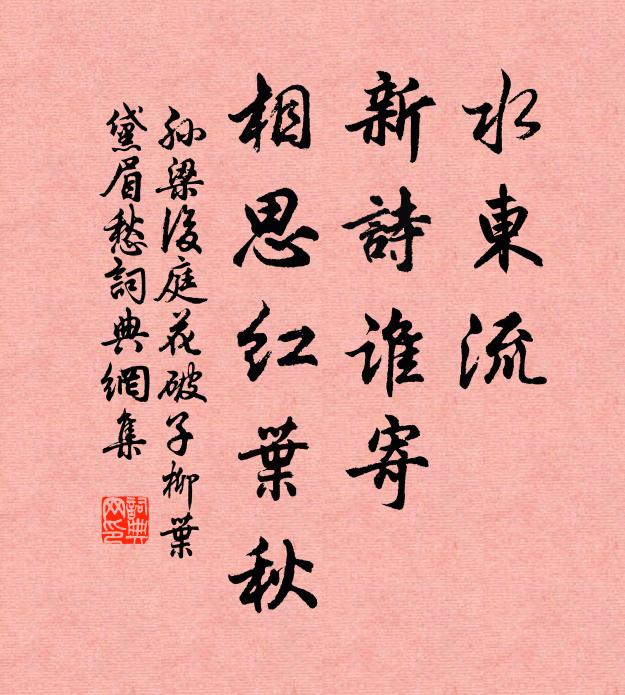 水東流
新詩誰寄
相思紅葉秋
孙梁後庭花破子柳葉
黛眉愁詞典網集
詞典
网印